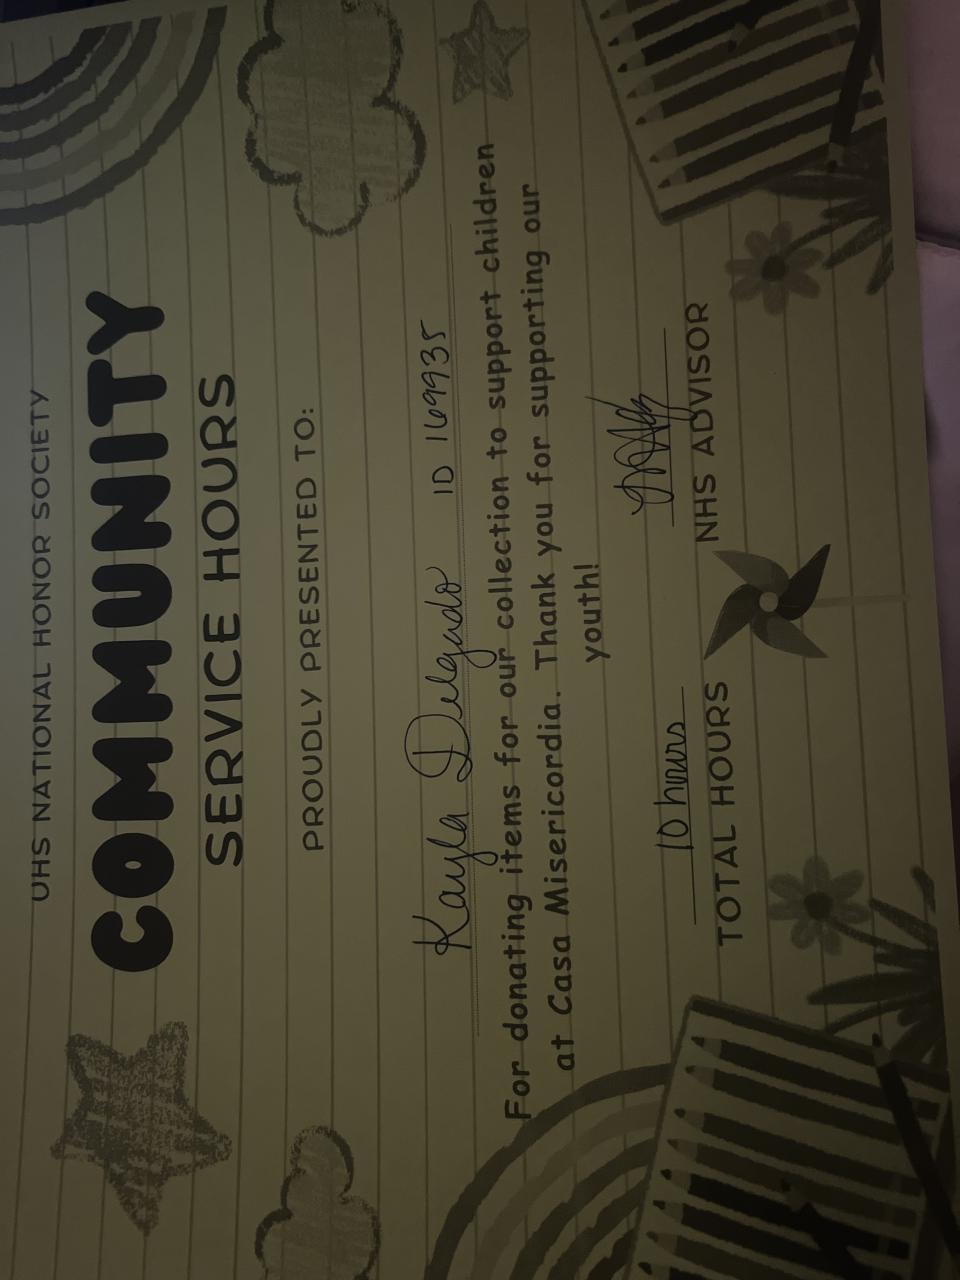 UHS NATIONAL HONOR SOCIETY
COMMUNITY
SERVICE HOURS
PROUDLY PRESENTED TO:
Kayla Delgado ID 169935
For donating items for our collection to support children
at Casa Misericordia. Thank you for supporting our
youth!
10 hours
TOTAL HOURS NHS ADVISOR